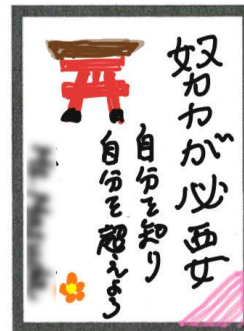 努力が必要
自分を知り
自分を超えよう